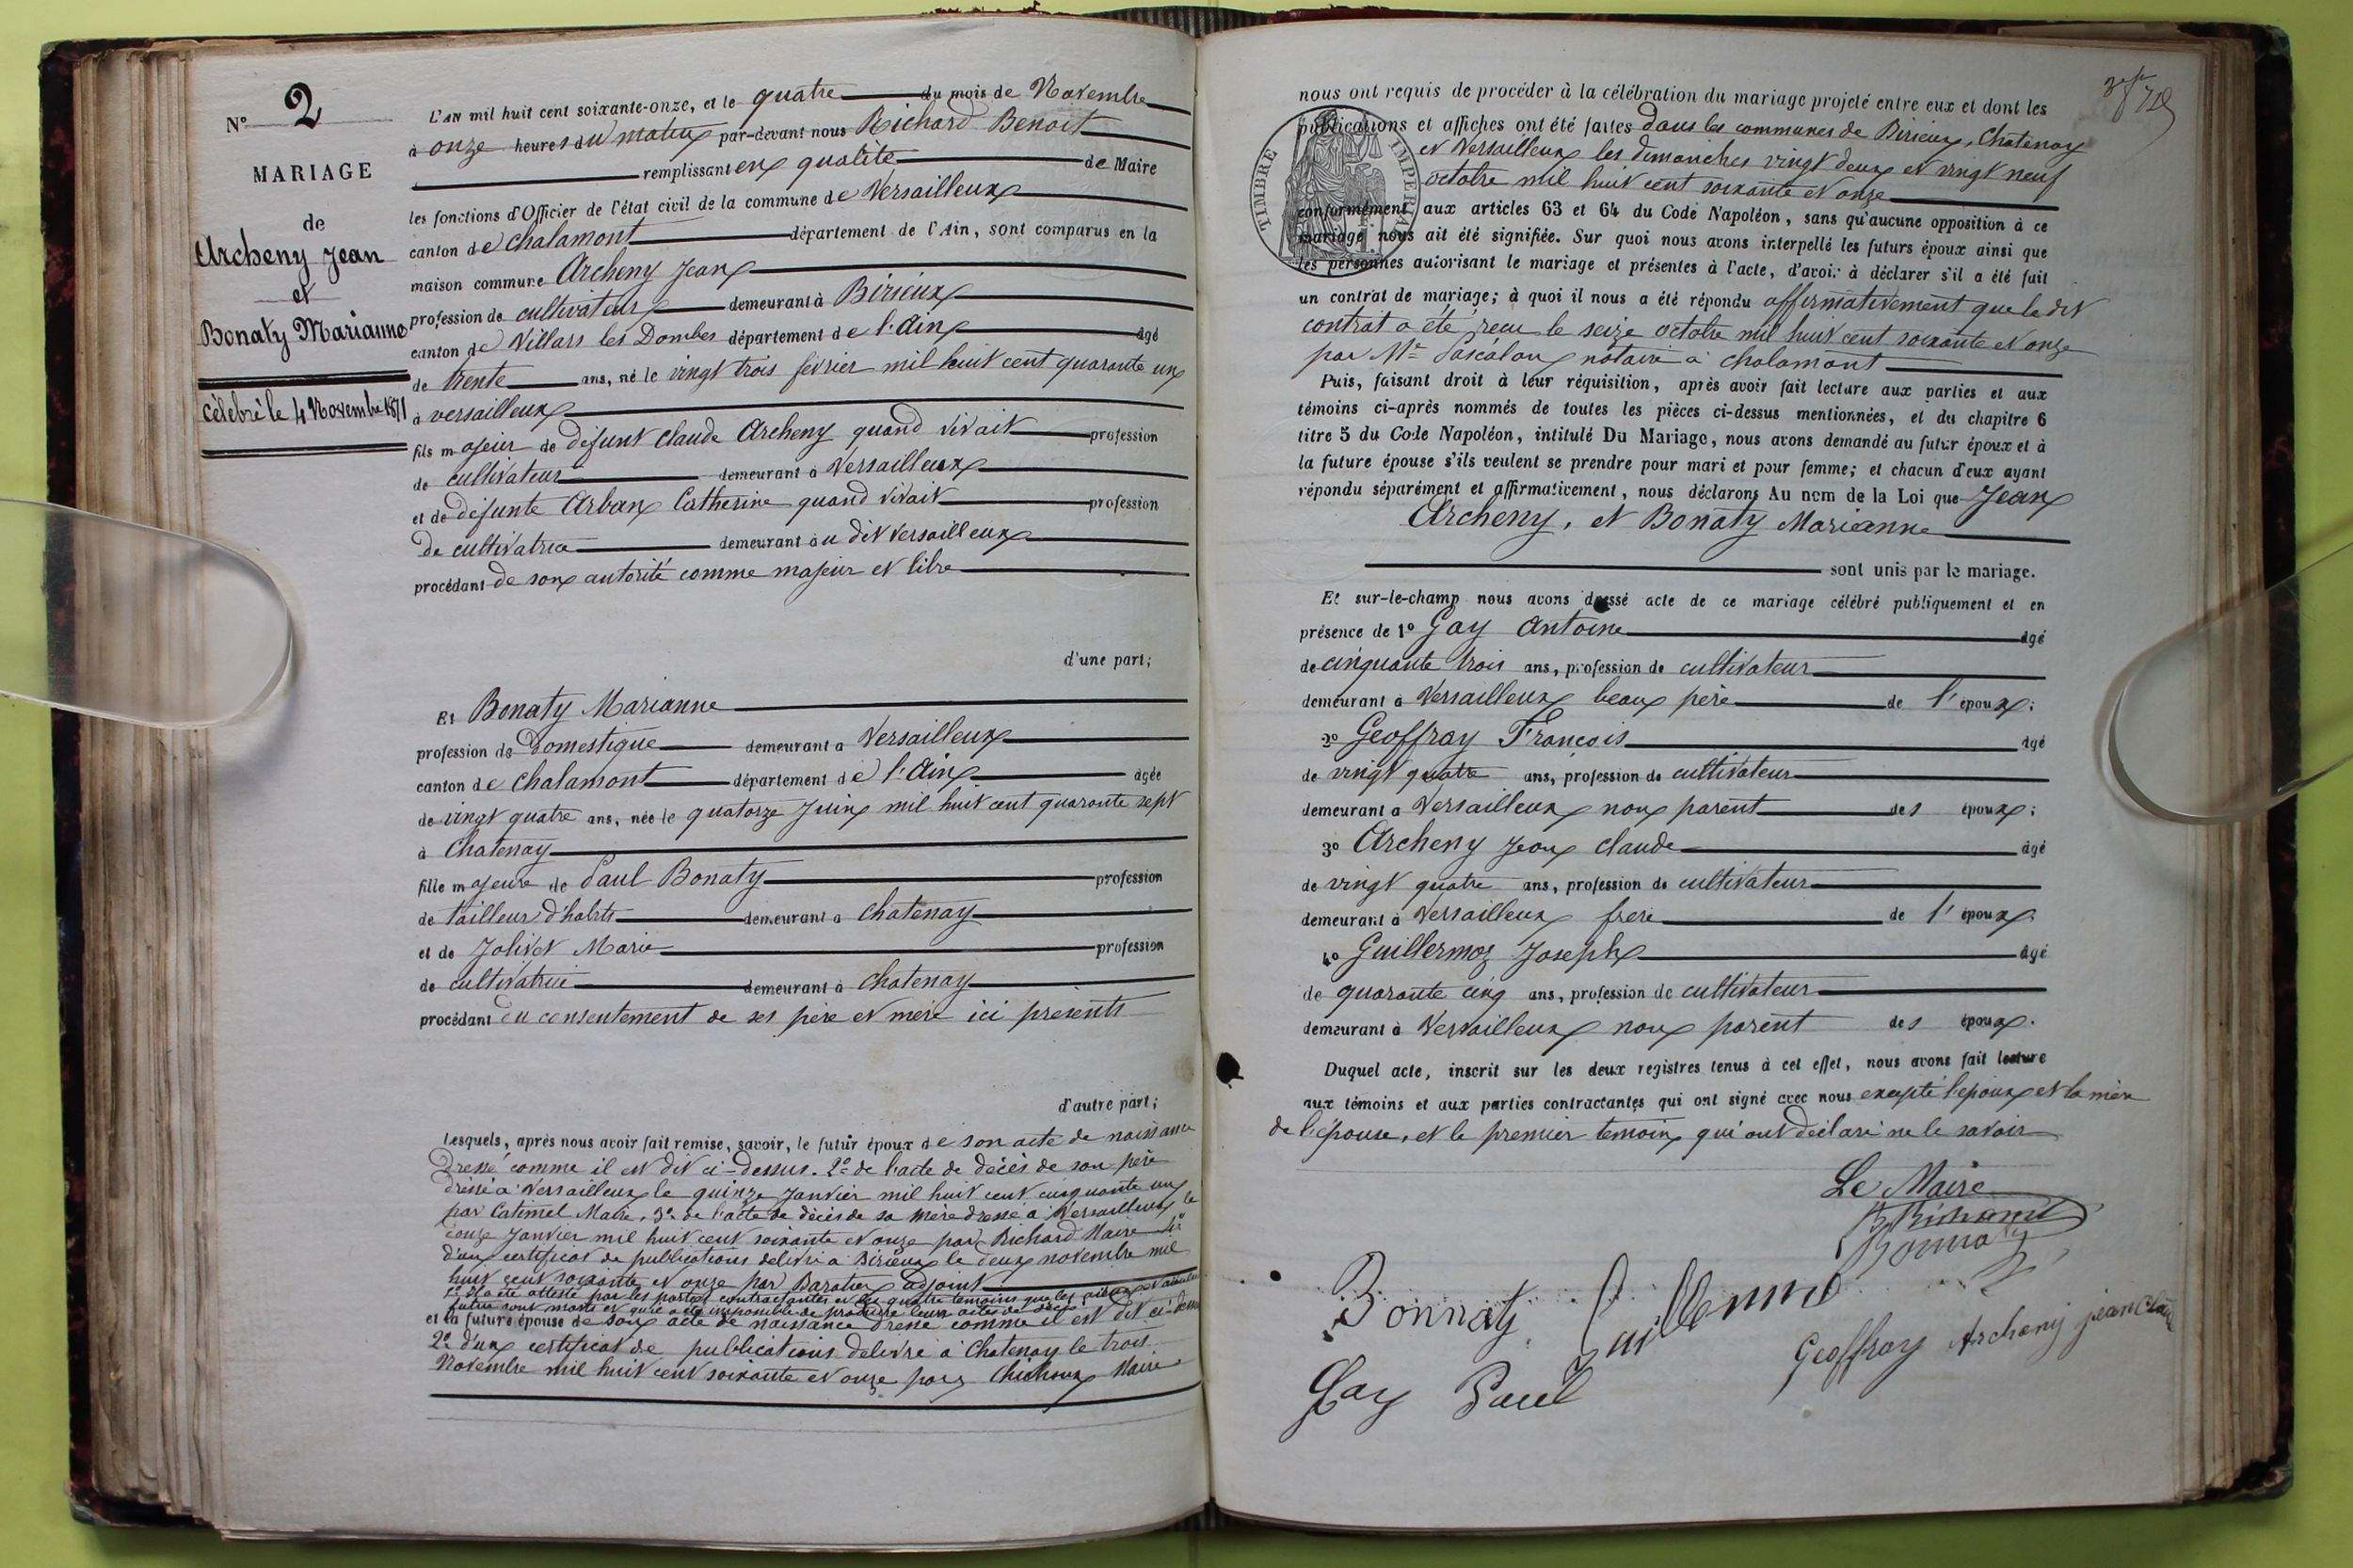 N° 2
MARIAGE
de
Archeny Jean
et
Bonaty Marianne
célébré le 4 Novembre 1871
L'AN mil huit cent soixante-onze, et le quatre du mois de Novembre
à onze heures du matin par-devant nous Richard Benoit
remplissant en qualité de Maire
les fonctions d'Officier de l'état civil de la commune de Versailleux
canton de chalamont département de l'Ain, sont comparus en la
maison commune Archeny Jean
profession de cultivateur demeurant à Birieux
canton de Villars les Dombes département de l'Ain âgé
de trente ans, né le vingt trois février mil huit cent quarante un
à versailleux
fils majeur de défunt claude Archeny quand vivait profession
de cultivateur demeurant à Versailleux
et de défunte Arban Catherine quand vivait profession
de cultivatrice demeurant au dit versailleux
procédant de son autorité comme majeur et libre
d'une part;
Et Bonaty Marianne
profession de domestique demeurant à Versailleux
canton de chalamont département de l'Ain âgée
de vingt quatre ans, née le quatorze Juin mil huit cent quarante sept
à Chatenay
fille majeure de Paul Bonaty profession
de tailleur d'habits demeurant à chatenay
et de Jolivet Marie profession
de cultivatrice demeurant à chatenay
procédant du consentement de ses père et mère ici présents
d'autre part;
Lesquels, après nous avoir fait remise, savoir, le futur époux de son acte de naissance
dressé comme il est dit ci-dessus. 2° de l'acte de décès de son père
dressé à Versailleux le quinze Janvier mil huit cent cinquante un
par Catimel Maire, 3° de l'acte de décès de sa mère dressé à Versailleux le
onze Janvier mil huit cent soixante et onze par Richard Maire 4°
d'un certificat de publications délivré à Birieux le deux novembre mil
huit cent soixante et onze par Baratier adjoint
5° Il a été attesté par les parties contractantes et les quatre témoins que les aieux et aieules
futur sont morts et qu'il a été impossible de produire leurs actes de décès
et la future épouse de son acte de naissance dressé comme il est dit ci-dessus
2° d'un certificat de publications délivré à Chatenay le trois
Novembre mil huit cent soixante et onze par Chichoux Maire
nous ont requis de procéder à la célébration du mariage projeté entre eux et dont les
publications et affiches ont été faites dans les communes de Birieux, Chatenay
et Versailleux les dimanches vingt deux et vingt neuf
octobre mil huit cent soixante et onze
TIMBRE IMPERIAL
conformément aux articles 63 et 64 du Code Napoléon, sans qu'aucune opposition à ce
mariage nous ait été signifiée. Sur quoi nous avons interpellé les futurs époux ainsi que
les personnes autorisant le mariage et présentes à l'acte, d'avoir à déclarer s'il a été fait
un contrat de mariage; à quoi il nous a été répondu affirmativement que le dit
contrat a été reçu le seize octobre mil huit cent soixante et onze
par Me Pascalon notaire à chalamont
Puis, faisant droit à leur réquisition, après avoir fait lecture aux parties et aux
témoins ci-après nommés de toutes les pièces ci-dessus mentionnées, et du chapitre 6
titre 5 du Code Napoléon, intitulé Du Mariage, nous avons demandé au futur époux et à
la future épouse s'ils veulent se prendre pour mari et pour femme; et chacun d'eux ayant
répondu séparément et affirmativement, nous déclarons Au nom de la Loi que Jean
Archeny, et Bonaty Marianne
sont unis par le mariage.
Et sur-le-champ nous avons dressé acte de ce mariage célébré publiquement et en
présence de 1° Gay Antoine âgé
de cinquante trois ans, profession de cultivateur
demeurant à Versailleux beau père de l'époux;
2° Geoffray François âgé
de vingt quatre ans, profession de cultivateur
demeurant à Versailleux non parent des époux;
3° Archeny Jean claude âgé
de vingt quatre ans, profession de cultivateur
demeurant à Versailleux frère de l'époux
4° Guillermoz Joseph âgé
de quarante cinq ans, profession de cultivateur
demeurant à Versailleux non parent des époux.
Duquel acte, inscrit sur les deux registres tenus à cet effet, nous avons fait lecture
aux témoins et aux parties contractantes qui ont signé avec nous excepté l'époux et la mère
de l'épouse, et le premier témoin qui ont déclaré ne le savoir
Le Maire
B Richard
Bonnaty
Bonnaty Guillermo
Geoffray Archeny jean Claude
Gay Paul